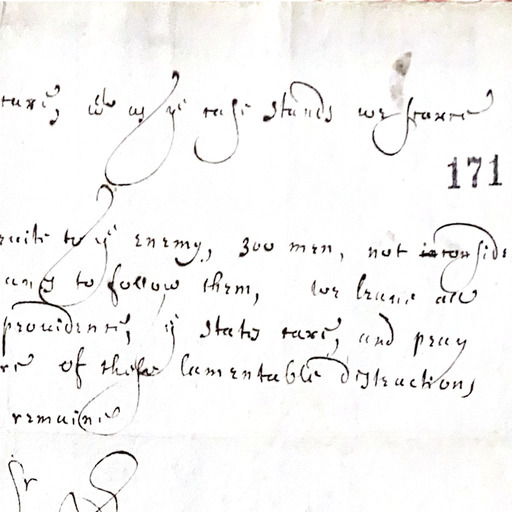 care, wch as ye case stands we scarce
171
ruite to ye enemy, 300 men, not inconside
and to follow them, we leaue all
prouidence, ye states care, and pray
re of these lamentable distractions
remaine
Sr